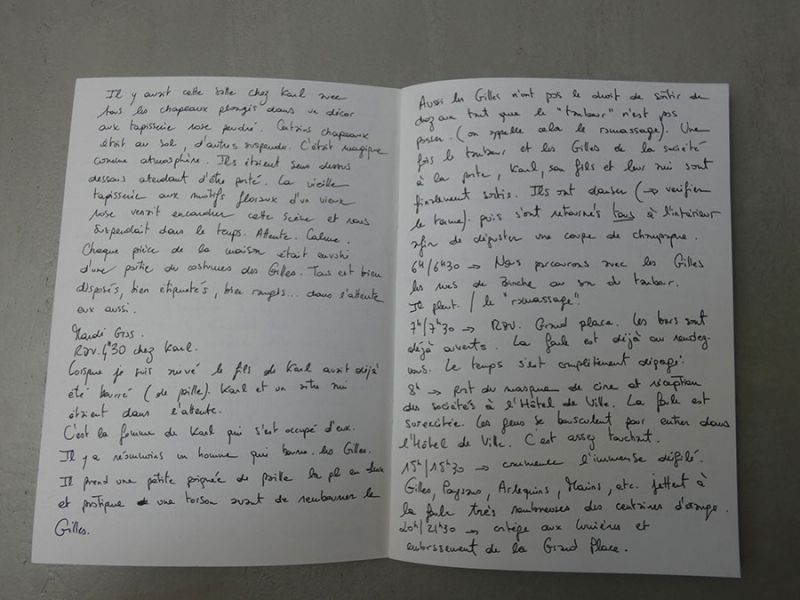 Il y avait cette salle chez Karl avec
tous les chapeaux plongés dans un décor
aux tapisserie rose poudré. Certains chapeaux
était au sol, d'autres suspendu. C'était magique
comme atmosphère. Ils étaient sens dessus
dessous attendant d'être porté. La vieille
tapisserie aux motifs floraux d'un vieux
rose venait encadrer cette scène et nous
suspendait dans le temps. Attente. Calme.
Chaque pièce de la maison était envahi
d'une partie du costumes des Gilles. Tous est bien
disposés, bien étiquetés, bien rangés... dans l'attente
eux aussi.
Mardi Gras.
RDV. 4h30 chez Karl.
Lorsque je suis arrivé le fils de Karl avait déjà
été bourré (de paille). Karl et un autre ami
étaient dans l'attente.
C'est la femme de Karl qui s'est occupé d'eux.
Il y a néanmoins un homme qui bourre les Gilles.
Il prend une petite poignée de paille la plie en deux
et pratique une torsion avant de rembourrer le
Gilles.
Aussi les Gilles n'ont pas le droit de sortir de
chez eux tant que le "tambour" n'est pas
passer. (on appelle cela le ramassage). Une
fois le tambour et les Gilles de la société
à la porte, Karl, son fils et leur ami sont
finalement sortis. Ils ont danser (→ vérifier
le terme). puis s'ont retournés tous à l'intérieur
afin de déguster une coupe de champagne.
6h/6h30 → Nous parcourons avec les Gilles
les rues de Binche au son du tambour.
Il pleut. / le "ramassage".
7h/7h30 → RDV. Grand place. Les bars sont
déjà ouverts. La foule est déjà au rendez-
vous. Le temps s'est complètement dégagé.
8h → Port du masque de cire et réception
des sociétés à l'Hôtel de Ville. La foule est
surexcitée. Les gens se bousculent pour entrer dans
l'Hôtel de Ville. C'est assez touchant.
15h/15h30 → commence l'immense défilé.
Gilles, Paysans, Arlequins, Marins, etc. jettent à
la foule très nombreuses des centaines d'orange.
20h/21h30 → cortège aux lumières et
embrasement de la Grand Place.